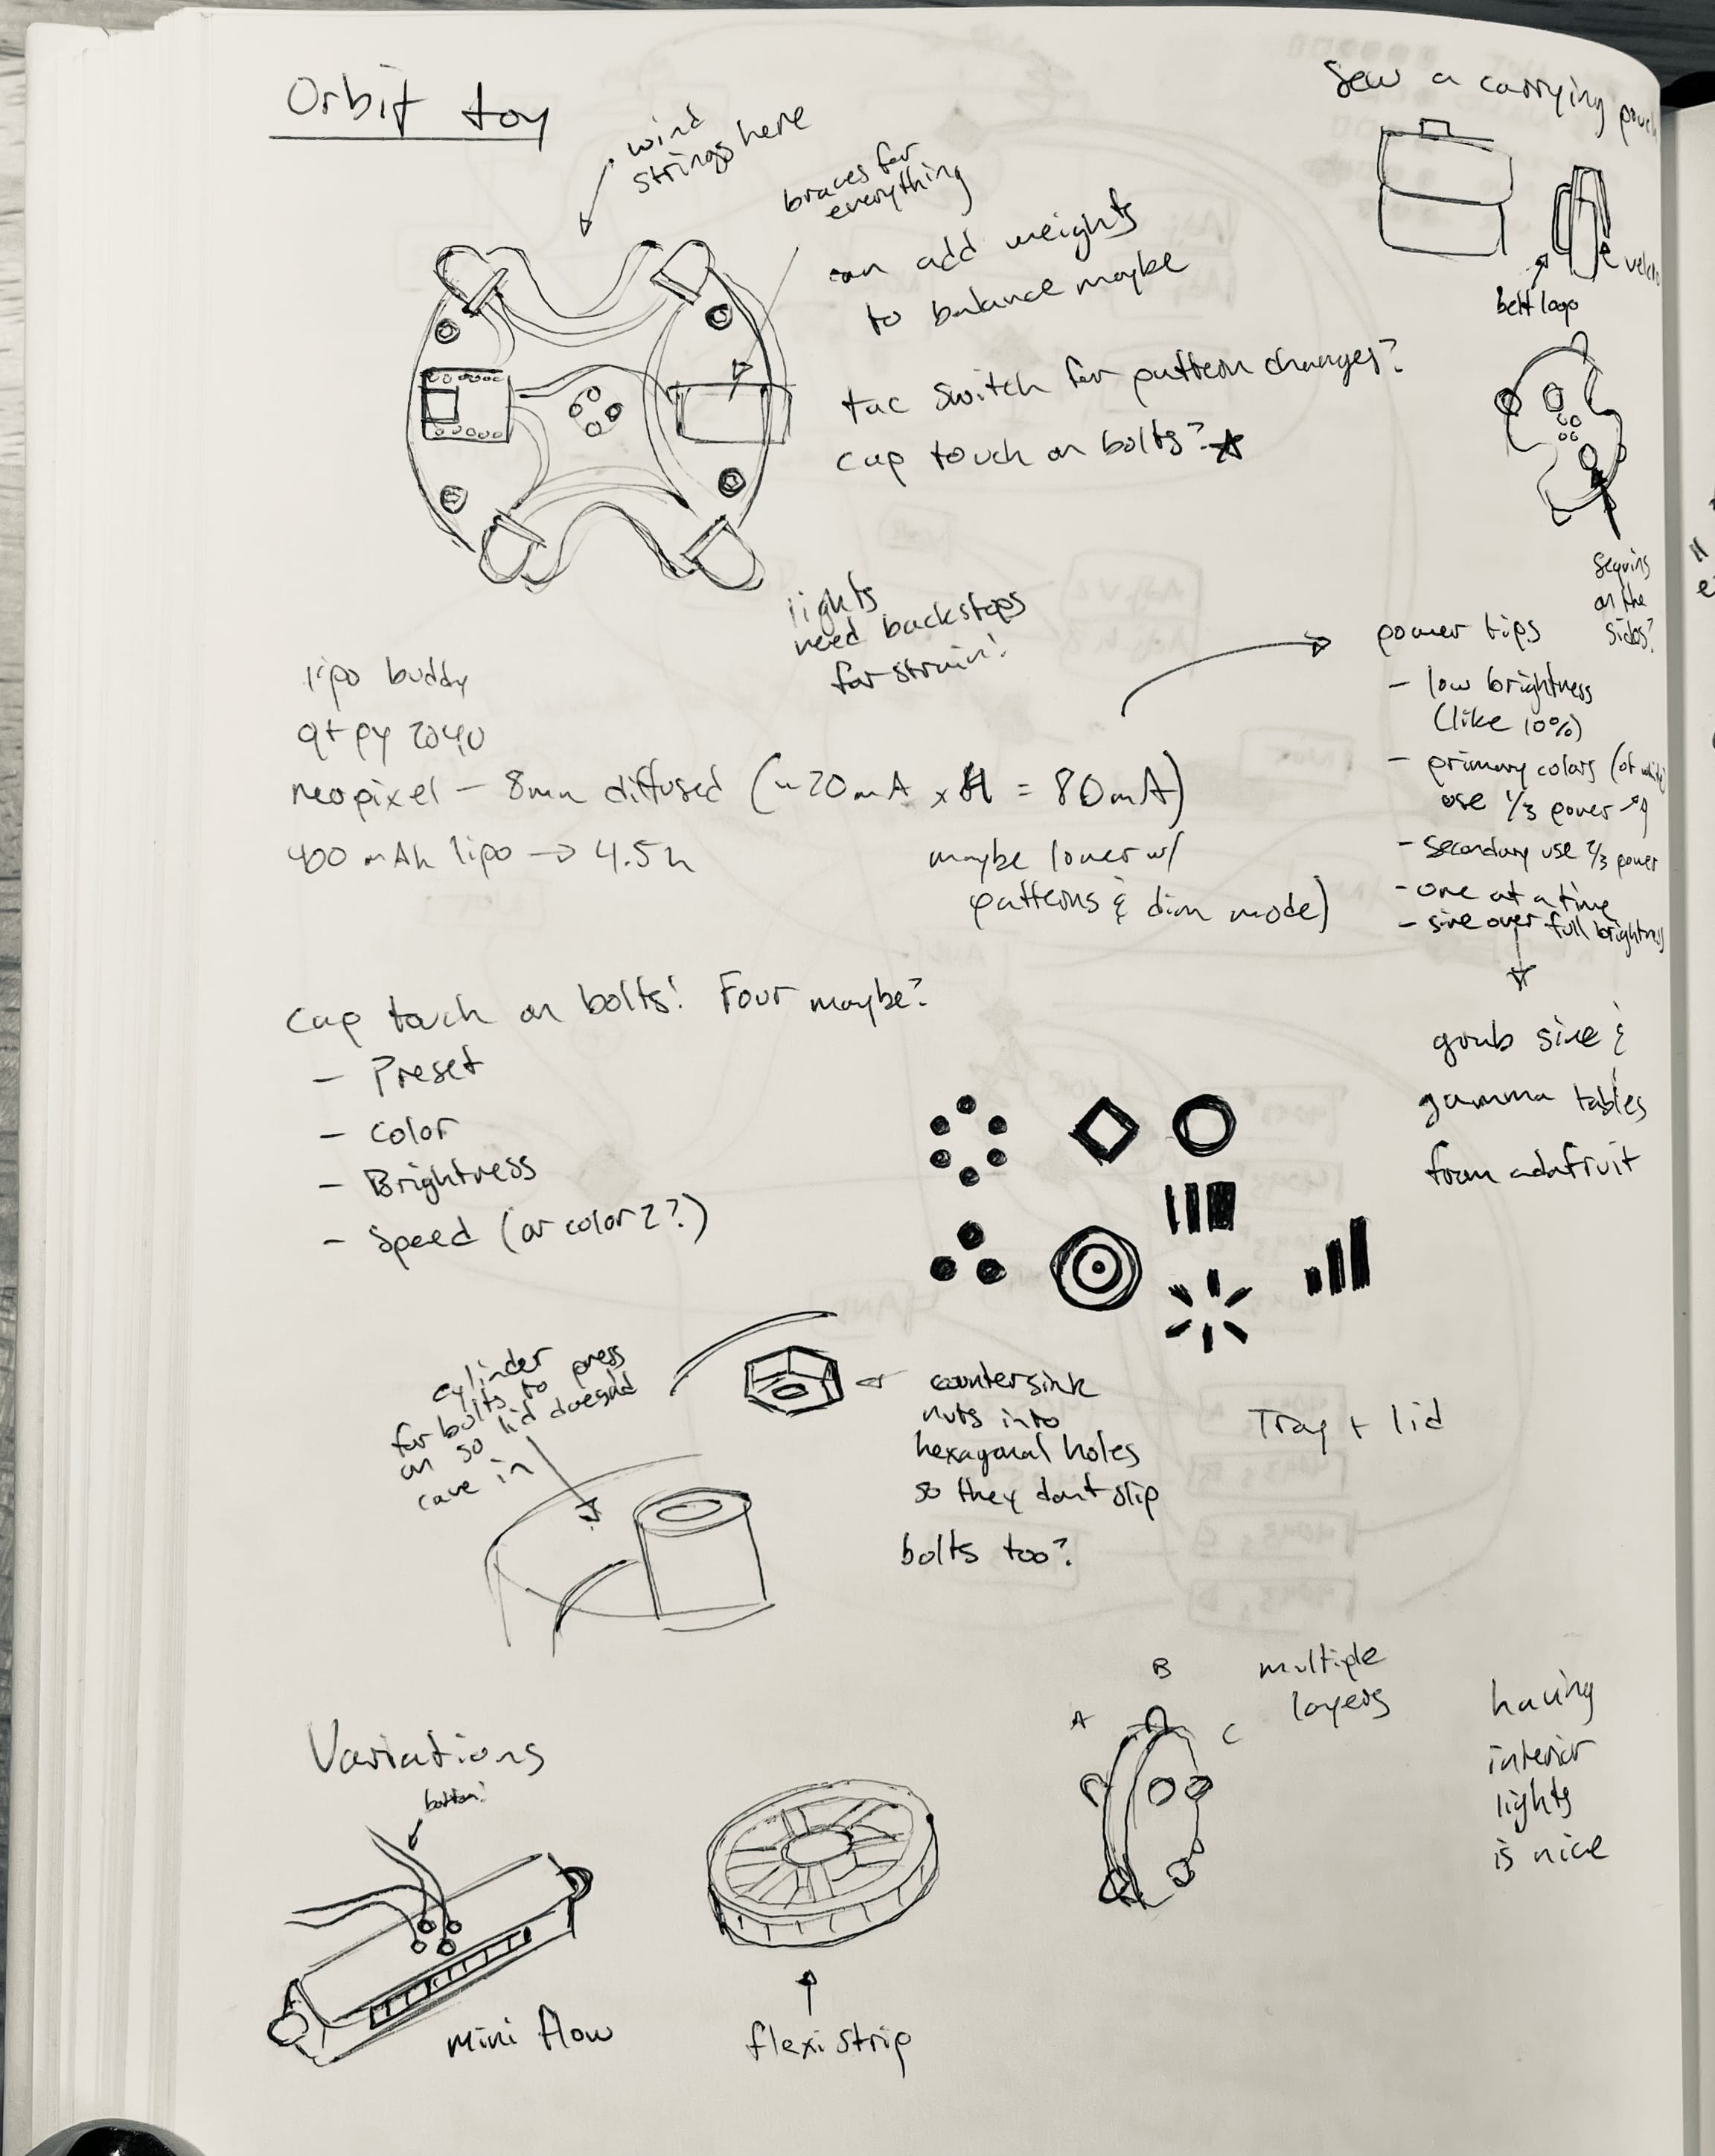 Orbit toy
wind
strings here
braces for
everything
can add weights
to balance maybe
tac switch for pattern changes?
cap touch on bolts?
lights
need backstops
for strain!
Sew a carrying pouch
velcro
belt loop
sequins
on the
sides?
lipo buddy
qt py 2040
neopixel - 8mm diffused (~20mA x 4 = 80mA)
400 mAh lipo → 4.5h
maybe lower w/
patterns & dim mode)
power tips
- low brightness
(like 10%)
- primary colors (of white)
use 1/3 power
- secondary use 2/3 power
- one at a time
- sine over full brightness
grab sine &
gamma tables
from adafruit
Cap touch on bolts! Four maybe?
- Preset
- Color
- Brightness
- Speed (or color 2?)
cylinder
for bolts to press
on so lid doesnt
cave in
countersink
nuts into
hexagonal holes
so they dont slip
bolts too?
Tray + lid
Variations
button?
mini flow
flexi strip
A
B
C
multiple
layers
having
interior
lights
is nice